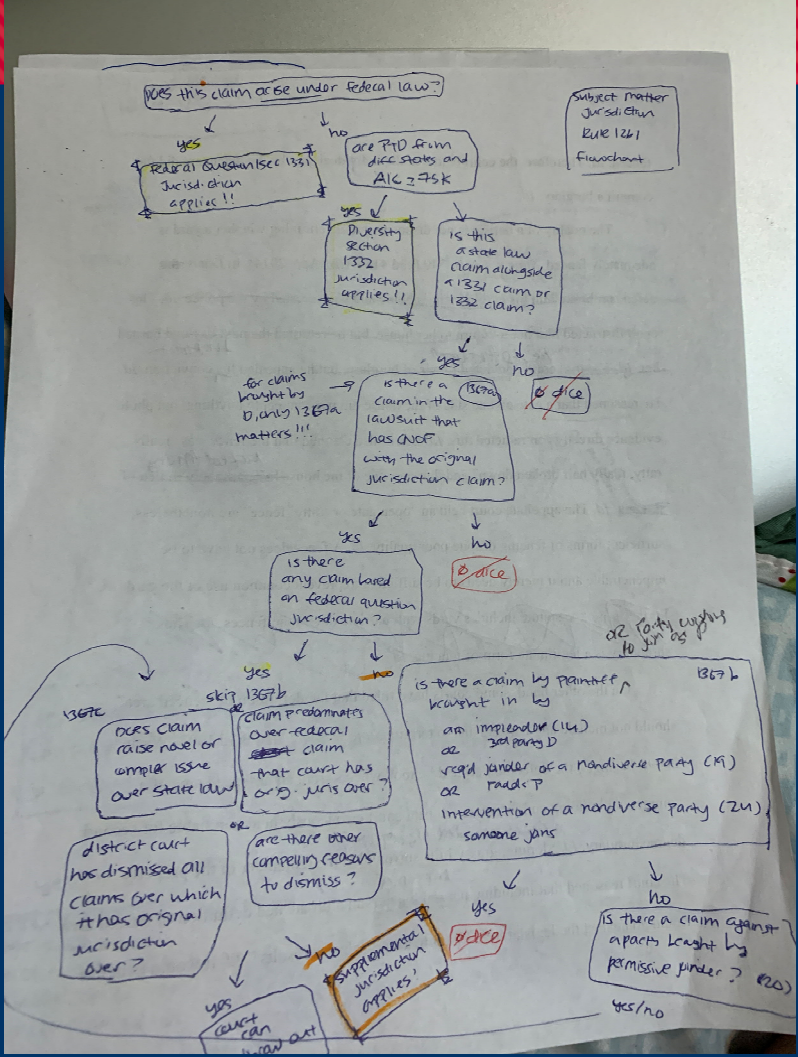 Does this claim arise under federal law?
subject matter
jurisdiction
Rule 1261
flowchart
yes
no
Federal Question/sec 1331
jurisdiction
applies!!
are P+D from
diff states and
AIC ≥ 75K
yes
Diversity
section
1332
jurisdiction
applies!!
is this
a state law
claim alongside
a 1331 claim or
1332 claim?
yes
no
Ø dice
for claims
brought by
D, only 1367a
matters!!!
is there a
1367a
claim in the
lawsuit that
has CNOF
with the original
jurisdiction claim?
yes
no
Ø dice
is there
any claim based
on federal question
jurisdiction?
yes
no
skip 1367b
1367c
Does claim
raise novel or
complex issue
over state law
OR
claim predominates
over federal
claim
that court has
orig. juris over?
OR
district court
has dismissed all
claims over which
it has original
jurisdiction
over?
are there other
compelling reasons
to dismiss?
yes
no
court
can
supplemental
jurisdiction
applies!
OR party wishing
to join as
is there a claim by plaintiff ^
1367b
brought in by
an impleador (14)
OR 3rd party D
req'd joinder of a nondiverse party (19)
OR
intervention of a nondiverse party (24)
someone joins
yes
Ø dice
no
is there a claim against
a party brought by
permissive joinder? (20)
yes/no